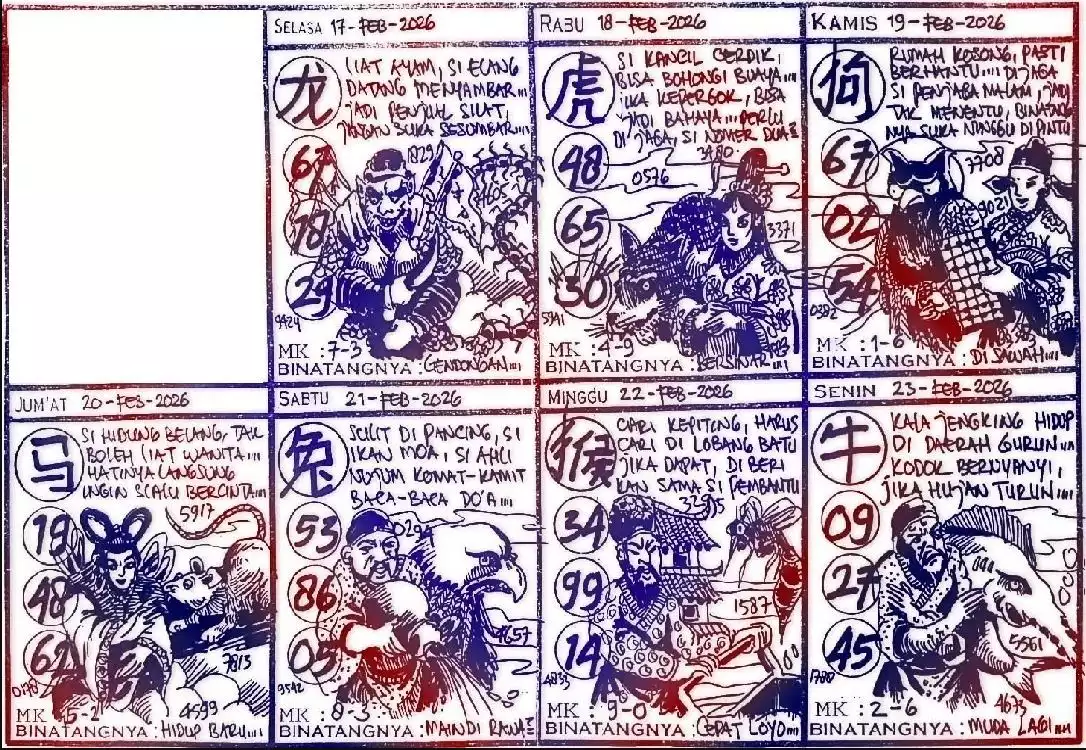 SELASA 17-FEB-2026
龙
LIAT AYAM, SI ELANG
DATANG MENYAMBAR....
JADI PENJUAL SILAT,
JANGAN SUKA SESUMBAR....
1829
67
78
29
9424
MK : 7-3
BINATANGNYA : GENDONGAN....
RABU 18-FEB-2026
虎
SI KANCIL CERDIK,
BISA BOHONGI BUAYA....
JIKA KEPERGOK, BISA
JADI BAHAYA....PERLU
DI JAGA, SI NOMER DUA
3480
0576
48
65
3371
30
5941
MK : 4-9
BINATANGNYA : BERSINAR....
KAMIS 19-FEB-2026
狗
RUMAH KOSONG, PASTI
BERHANTU.... DI JAGA
SI PENJAGA MALAM, JADI
TAK MENENTU, BINATANG
NYA SUKA NUNGGU DI PINTU
3708
67
02
54
MK : 1-6
BINATANGNYA : DI SAWAH....
JUM'AT 20-FEB-2026
马
SI HIDUNG BELANG, TAK
BOLEH LIAT WANITA....
HATINYA LANGSUNG
INGIN SLALU BERCINTA....
5917
19
48
62
7813
4593
MK : 5-2
BINATANGNYA : HIDUP BARU....
SABTU 21-FEB-2026
兔
SULIT DI PANCING, SI
IKAN MOA, SI AHLI
NUJUM KOMAT-KAMIT
BACA-BACA DO'A....
0294
53
86
05
9542
MK : 8-3
BINATANGNYA : MAIN DI RAWA
MINGGU 22-FEB-2026
猴
CARI KEPITING, HARUS
CARI DI LOBANG BATU
JIKA DAPAT, DI BERI
KAN SAMA SI PEMBANTU
34
99
1587
14
MK : 9-0
BINATANGNYA : CEPAT LOYO....
SENIN 23-FEB-2026
牛
KALA JENGKING HIDUP
DI DAERAH GURUN....
KODOK BERNYANYI,
JIKA HUJAN TURUN....
09
27
45
5561
4673
MK : 2-6
BINATANGNYA : MUDA LAGI....